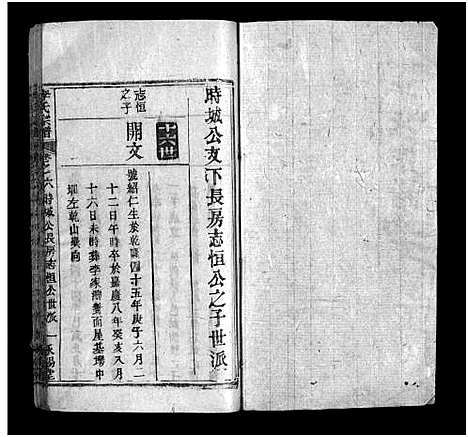 時城公支下長房志恒公之子世派
十六世
志恒之子
開文
號紹仁生於乾隆四十五年庚子六月二
十二日午時卒於嘉慶八年癸亥八月
十六日未時葬李家灣對面屋基塆中
圳左乾山巽向
氏宗譜 卷之六 時城公長房志恒公世派 一